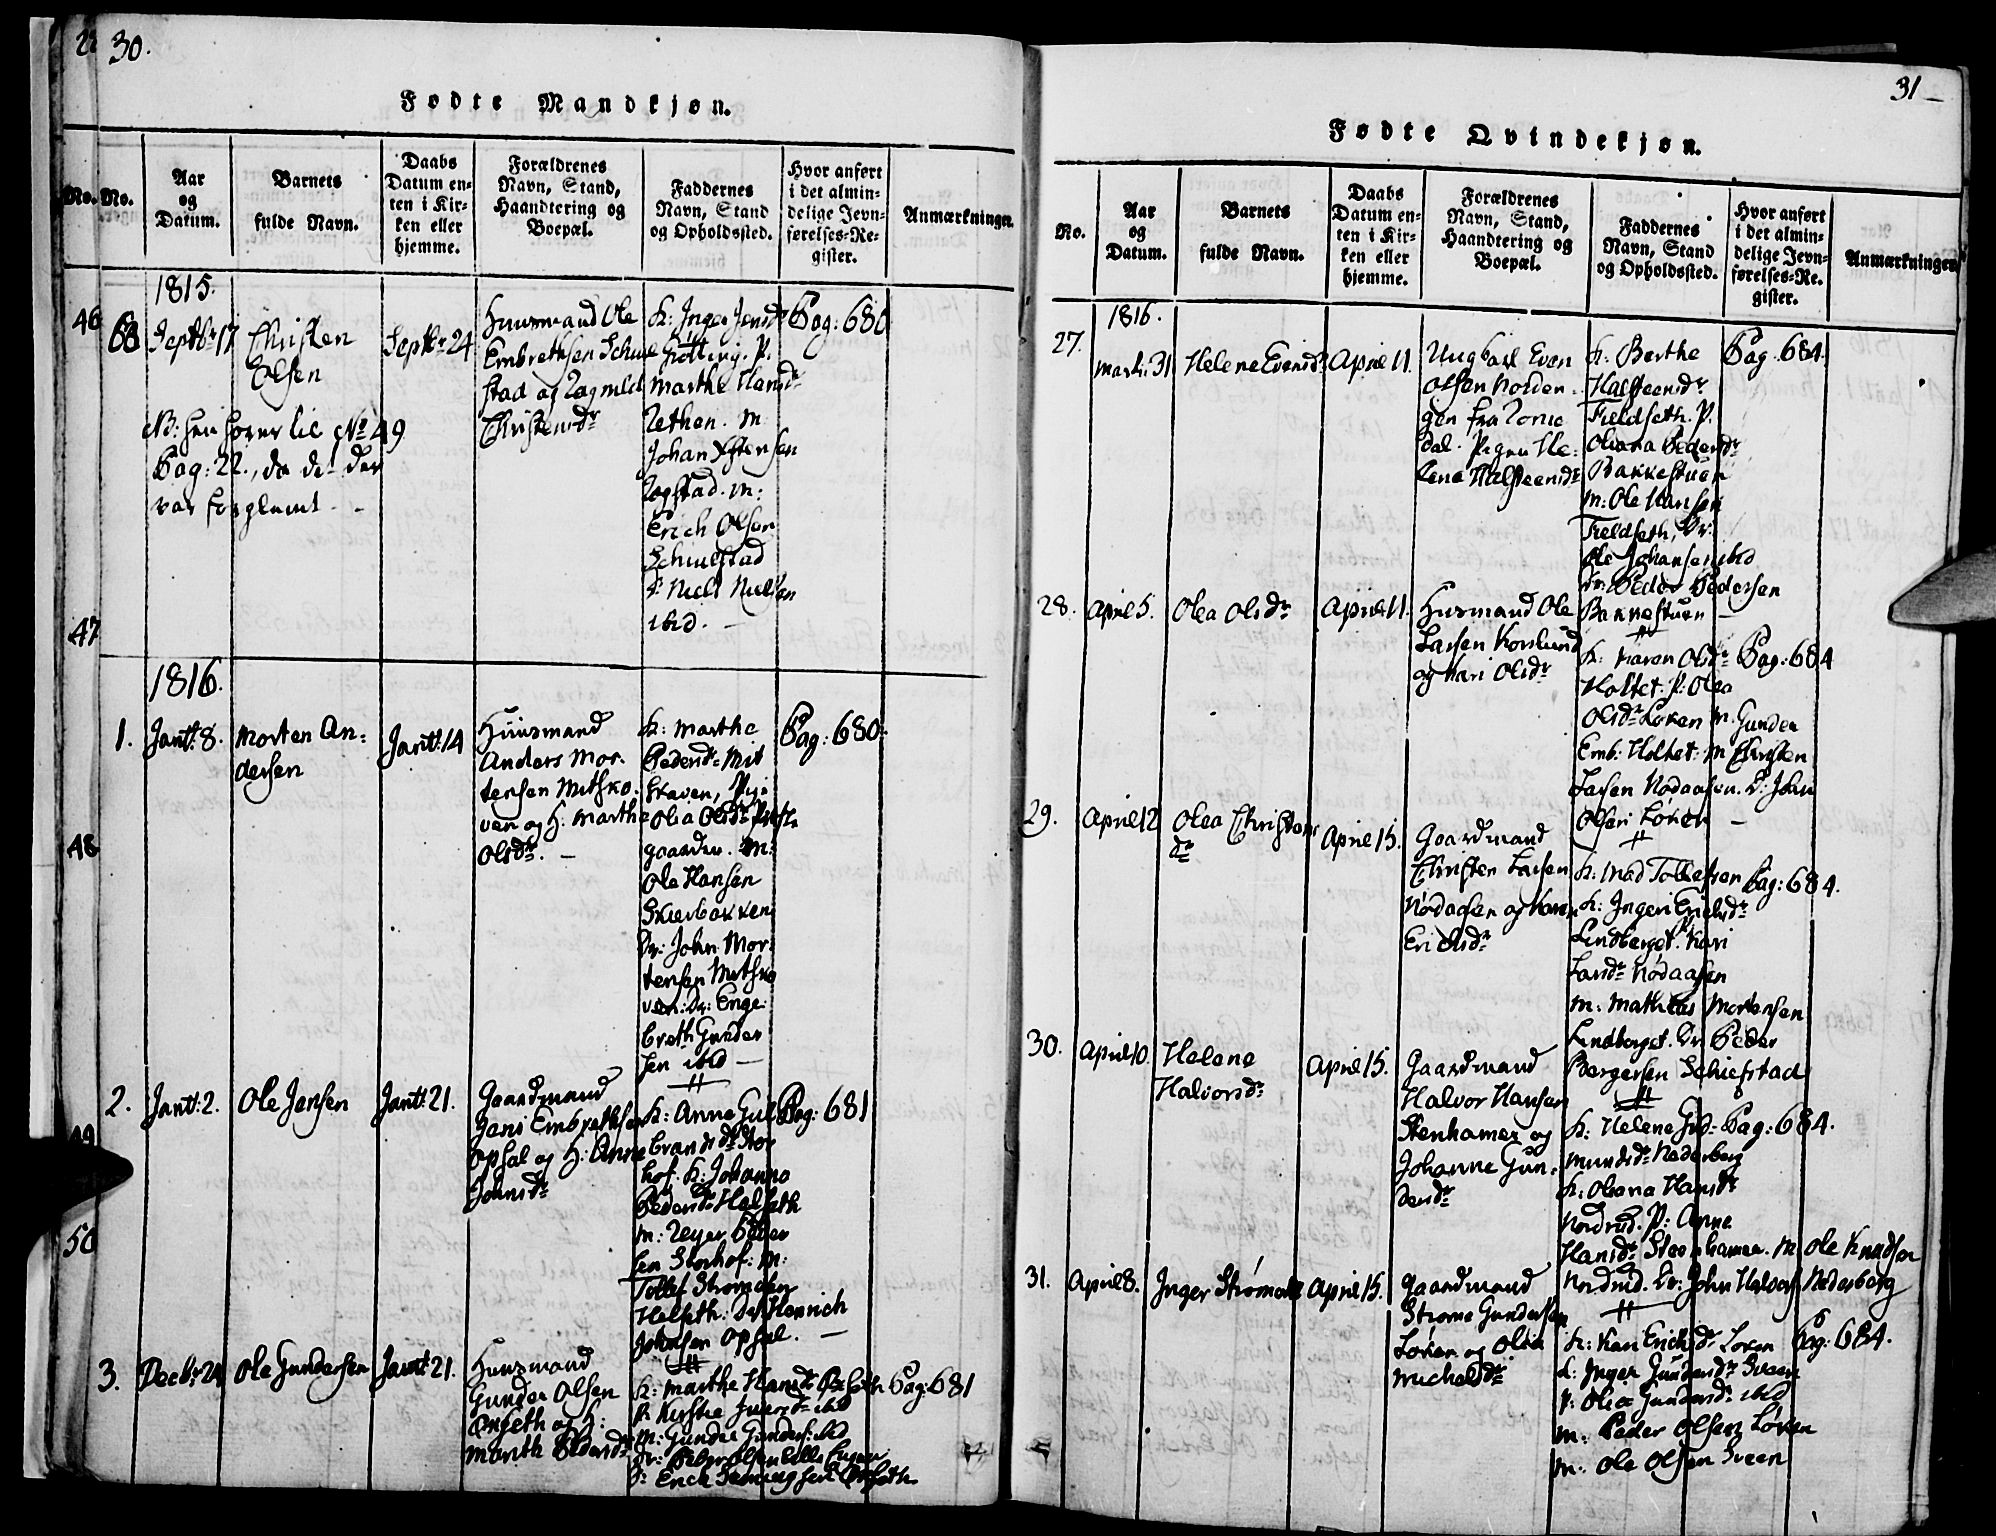 30.
Fødte Mandkjøn.
No.
No.
Aar
og
Datum.
Barnets
fulde Navn.
Daabs
Datum en-
ten i Kir-
ken eller
hjemme.
Forældrenes
Navn, Stand,
Haandtering og
Boepæl.
Faddernes
Navn, Stand
og Opholdssted.
Hvor anført
i det almin-
delige Jevn-
førelses-Re-
gister.
Anmærkninger.
46
47
48
49
50
1815.
68
Septbr 17
Christen
Olsen
Septbr 24
Huusmand Ole
Embrethsen
stad og
Christensdr
K: Inger Jensdr
P.
Marthe Hansd
M
Johan
M:
Erich Olsen
Niels Nielsen
ibid.
Pag: 680
No 49
Pag: 22., da det der
var forglemt
1816.
1.
Janu: 8.
Morten An=
dersen
Janu: 14
Huusmand
Anders Mor-
tensen Mitsko-
ven og H: Marthe
Olsdr.
K: Marthe
Pedersdr Mit
skaven, Pi:
Olia Olsdr
gaarden. M:
Ole Hansen
Skierbakken
Dr: John Mor:
tensen Mitsko
ven: Dr: Enge:
breth Gunder
sen ibid
Pag: 680.
2.
Janu: 2.
Ole Jensen
Janu: 21.
Gaardmand
Jens Embrethsen
Opsal og H: Anne
Johnsdr
K: Anne Gul
brandsdr Stor
hof. K: Johanna
Pedersdr Helseth
M: Peder
sen Storhof: M:
Tollef Strømsen
Helseth. Henrich
Johnsen Opsal.
Pag: 681
3.
Decbr 24
Ole Gundersen
Janu: 21.
Huusmand
Gunder Olsen
og H:
Marith Pedersdr
K: Marthe Hansdr
P: Kirstie Iversdr ibid
M: Gunder Gunders: ibid
Pag: 681
31
Fødte Qvindekjøn.
No.
Aar
og
Datum.
Barnets
fulde Navn.
Daabs
Datum en-
ten i Kir-
ken eller
hjemme.
Forældrenes
Navn, Stand,
Haandtering og
Boepæl.
Faddernes
Navn, Stand
og Opholdssted.
Hvor anført
i det almin-
delige Jevn-
førelses-Re-
gister.
Anmærkninger
1816.
27.
Marti 31
Helene Evensdr
April 11.
Ungkarl Even
Olsen Norden-
gen fra
dal. Pigen He:
lena Halsteensdr
K: Berthe
Halsteensdr
Fieldseth. P.
Oliana Pedersdr
Bakkestuen
M: Ole Hansen
Fieldseth, Dr:
Ole Johansen ibid
Dr: Peder Pedersen
Bakkestuen
Pag: 684.
28.
April 5.
Olea Olsdr
April 11.
Husmand Ole
Larsen Korslund
og Kari Olsdr
K: Karen Olsdr
Holtet: P: Olea
Olsdr Løken M. Gunder
Emb: Holtet: M Christen
Larsen Nødaasen. D: John
Olsen Løken
Pag: 684
29.
April 12
Olea Christens
dr
April 15.
Gaardmand
Christen Larsen
Nødaasen og Karen
Erichsdr
K: Mad
K: Ingeri Erichsdr
Lindberget. P: Kari
Larsdr Nødaasen
M: Mathias Mortensen
Lindberget. Dr Peder
Bergersen Schiefstad
Pag: 684.
30.
April 10.
Helene
Halvorsdr
April 15.
Gaardmand
Halvor Hansen
Stenhamer og
Johanne Gun-
dersdr
K: Helene Gud-
mundsdr Nederberg
K: Oliana Hansdr
Nordrud. P: Anne
Hansdr Steenhamer. M Ole Knudsen
Nordrud. Dr: John Halvors: Nederberg
Pag: 684.
31.
April 8.
Inger Strømsdr
April 15.
Gaardmand
Strøme Gundersen
Løken og Olia
Michelsdr
K: Kari Erichsdr Løken
K: Inger Gundersdr Sveen
P: Olia Gundersdr ibid
M: Peder Olsen Løken
M: Ole Olsen Sveen
Pag: 684.